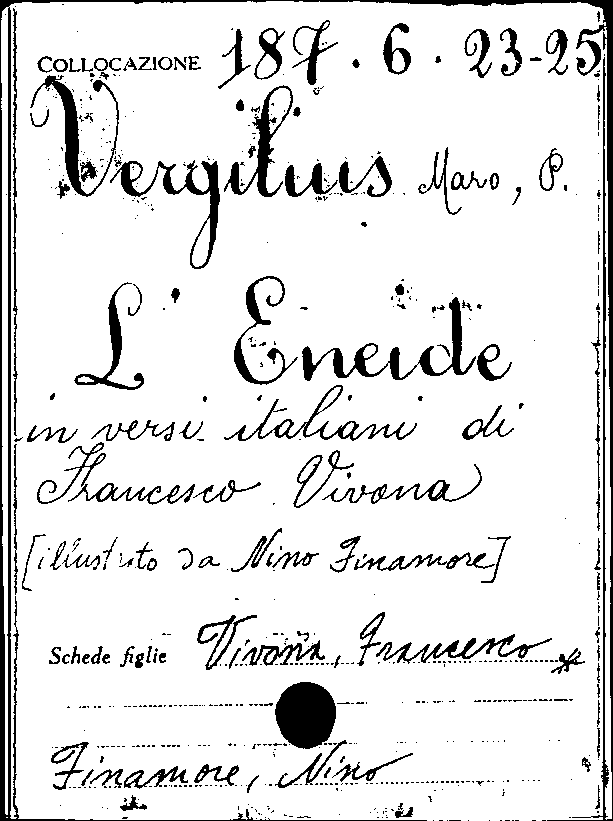 COLLOCAZIONE 187.6.23-25
Vergilius Maro, P.
L'Eneide
in versi italiani di
Francesco Vivona
[illustrato da Nino Finamore]
Schede figlie Vivona, Francesco *
Finamore, Nino